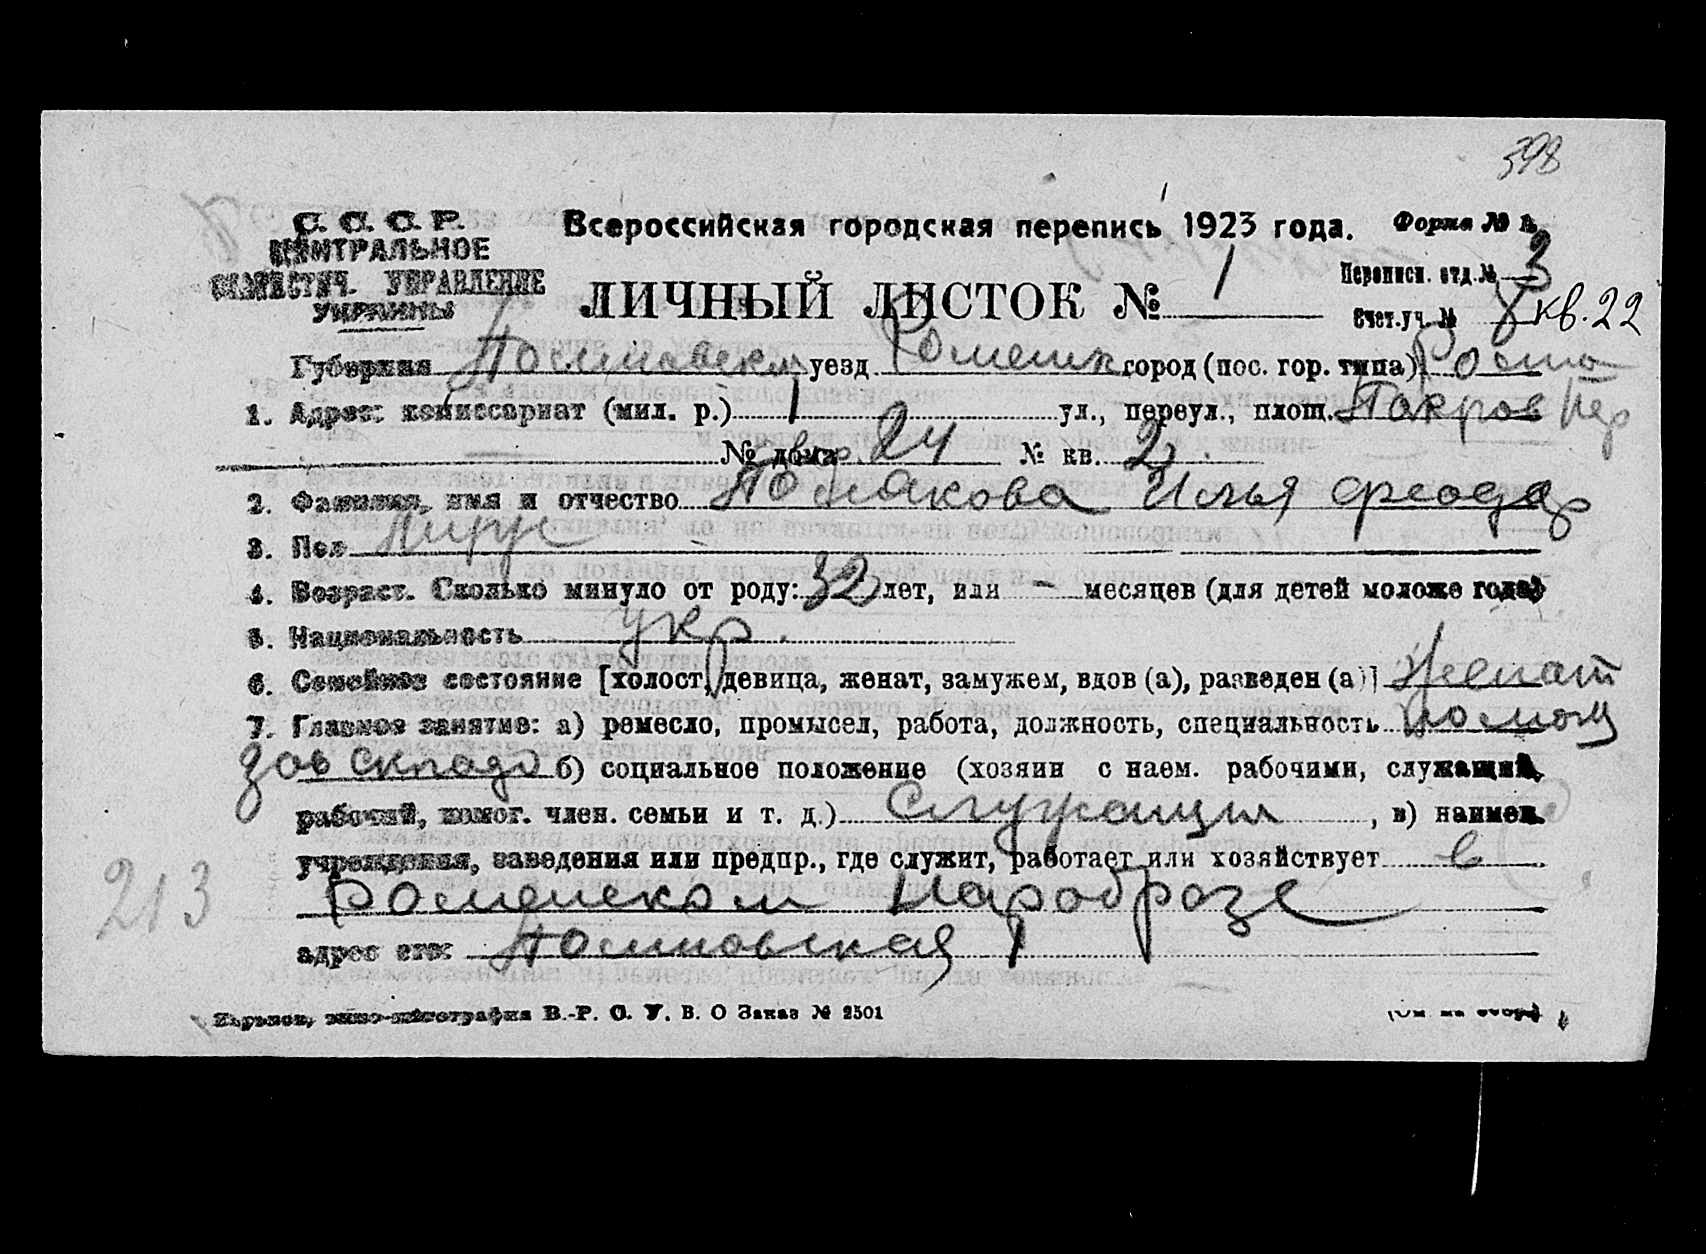 398
С. С. С. Р.
ЦЕНТРАЛЬНОЕ
СТАТИСТИЧ. УПРАВЛЕНИЕ
УКРАИНЫ
Всероссийская городская перепись 1923 года.
Форма № 1.
ЛИЧНЫЙ ЛИСТОК № 1
Переписн. отд. № 3
Счет. уч. № кв. 22
Губерния Полтавская уезд Роменск город (пос. гор. типа)
1. Адрес: комиссариат (мил. р.) 1 ул., переул., площ. Покров пер
№ дома 24 № кв. 2
2. Фамилия, имя и отчество Илья Феодор
3. Пол
4. Возраст. Сколько минуло от роду: 32 лет, или — месяцев (для детей моложе года)
5. Национальность укр.
6. Семейное состояние [холост, девица, женат, замужем, вдов (а), разведен (а)] женат
7. Главное занятие: а) ремесло, промысел, работа, должность, специальность помощ
зав складо б) социальное положение (хозяин с наем. рабочими, служащий,
рабочий, помог. член. семьи и т. д.) Служащий , в) наимен.
учреждения, заведения или предпр., где служит, работает или хозяйствует в
Роменском Наробразе
адрес его: Полтовская 1
213
Харьков, В.-Р. С. У. В. О Заказ № 2501
(См. на обор.)